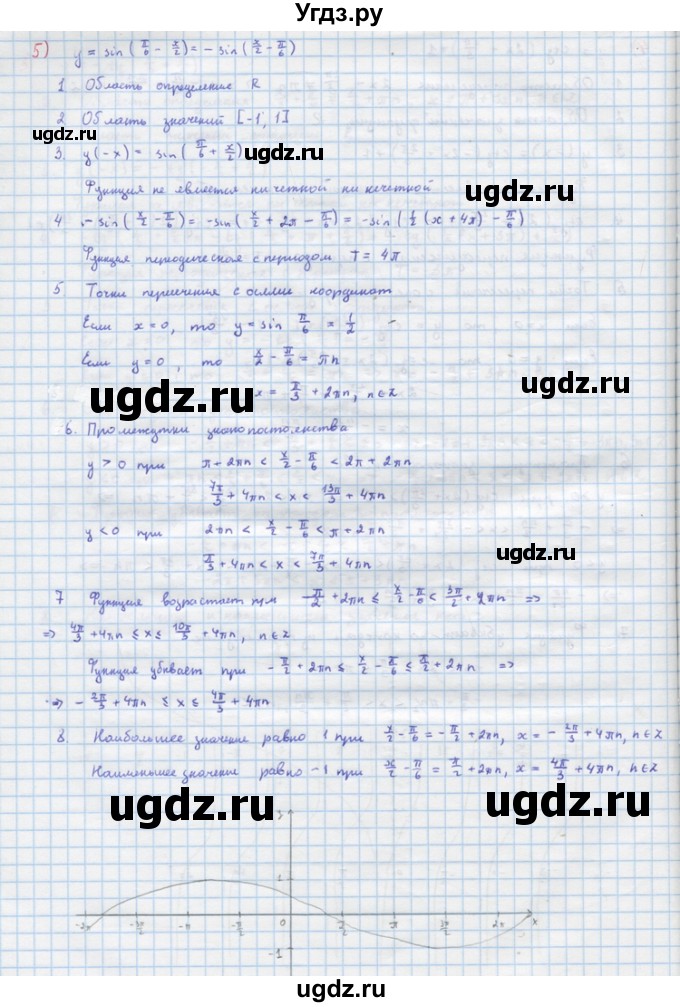 Угдз.ру
5) y = sin(π/6 - x/2) = - sin(x/2 - π/6)
1 Область определение R
2 Область значений [-1, 1]
3. y(-x) = sin(π/6 + x/2)
Функция не является ни четной ни нечетной
4 - sin(x/2 - π/6) = - sin(x/2 + 2π - π/6) = - sin(1/2 (x + 4π) - π/6)
Функция периодическая с периодом T = 4π
5 Точки пересечения с осями координат
Если x = 0, то y = sin π/6 = 1/2
Если y = 0, то x/2 - π/6 = πn
x = π/3 + 2πn, n∈Z
6. Промежутки знакопостоянства
y > 0 при π + 2πn < x/2 - π/6 < 2π + 2πn
7π/3 + 4πn < x < 13π/3 + 4πn
y < 0 при 2πn < x/2 - π/6 < π + 2πn
π/3 + 4πn < x < 7π/3 + 4πn
7 Функция возрастает при π/2 + 2πn ≤ x/2 - π/6 < 3π/2 + 2πn =>
=> 4π/3 + 4πn ≤ x ≤ 10π/3 + 4πn, n∈Z
Функция убывает при - π/2 + 2πn ≤ x/2 - π/6 ≤ π/2 + 2πn =>
=> - 2π/3 + 4πn ≤ x ≤ 4π/3 + 4πn
8. Наибольшее значение равно 1 при x/2 - π/6 = - π/2 + 2πn, x = - 2π/3 + 4πn, n∈Z
Наименьшее значение равно -1 при x/2 - π/6 = π/2 + 2πn, x = 4π/3 + 4πn, n∈Z
1
-2π -3π/2 -π -π/2 0 π/2 π 3π/2 2π x
-1
gdz.ru
ugdz.ru
ugdz.ru
ugdz.ru
ugdz.ru
ugdz.ru
ugdz.ru
ugdz.ru
ugdz.ru
ugdz.ru
ugdz.ru
ugdz.ru